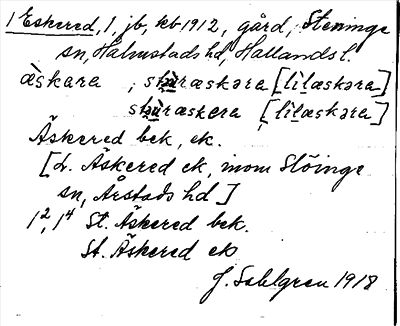 1 Eskered, 1, jb, kb 1912, gård, Steninge
sn, Halmstads hd, Hallands l.
æ̀skara ; stùræskəra [lìlæskəra]
stùræskera [lìlæskəra]
Äskered bek, ek.
[L. Äskered ek, inom Slöinge
sn, Årstads hd]
1², 1⁴ St. Äskered bek.
St. Äskered ek
J. Sahlgren 1918